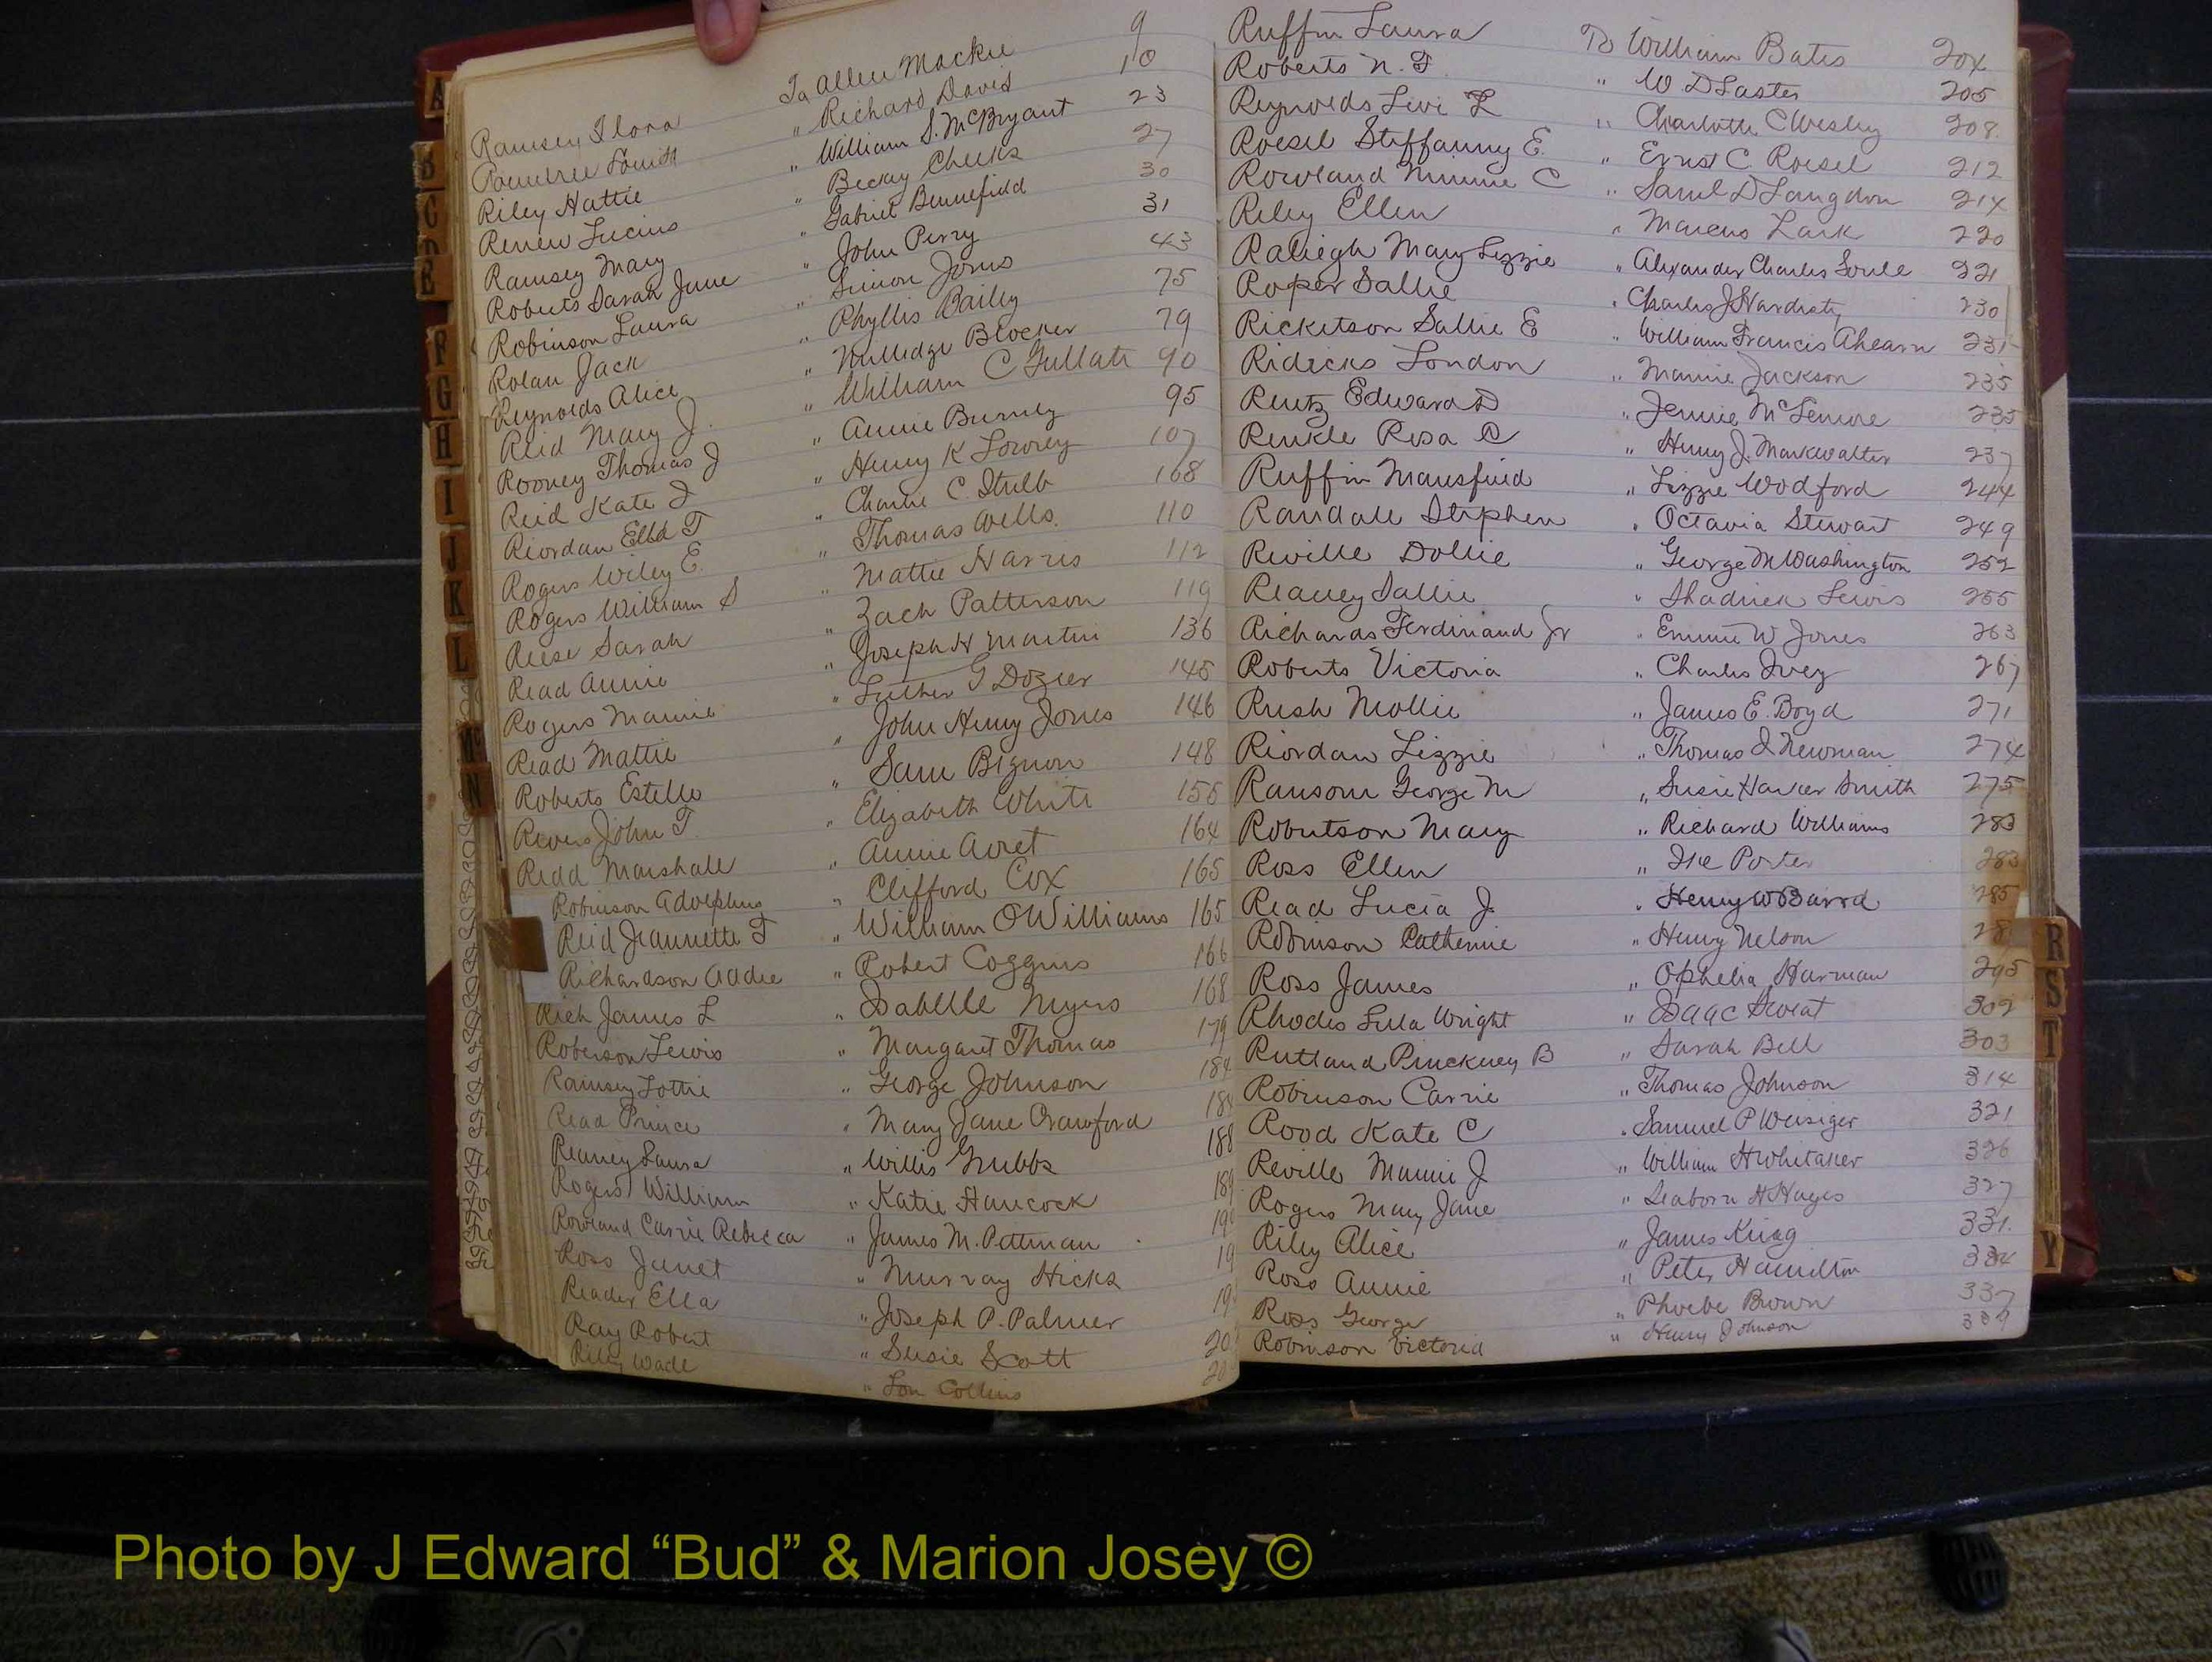 Ramsey Flora To Allen Mackie 9
Roundtree Louisa " Richard David 10
Riley Hattie " William S. McBryant 23
Renew Lucius " Becky Cheeks 27
Ramsey Mary " Gabriel Bennefield 30
Roberts Sarah Jane " John Perry 31
Robinson Laura " Simon Jones 43
Rolan Jack " Phyllis Bailey 75
Reynolds Alice " Blocker 79
Reid Mary J. " William C Gullatt 90
Rooney Thomas J " Annie Burney 95
Reid Kate I " Henry K Lowrey 107
Riordan Ella T " Charlie C. Stulb 108
Rogers Wiley E. " Thomas Wells 110
Rogers William S " Mattie Harris 112
Reese Sarah " Zach Patterson 119
Read Annie " Joseph H Martin 136
Rogers Mamie " Luther G Dozier 145
Read Mattie " John Henry Jones 146
Roberts Estelle " Sam Bignon 148
Rivers John T. " Elizabeth White 155
Redd Marshall " Annie Avret 164
Robinson Adolphus " Clifford Cox 165
Reid Jeannette T " William O Williams 165
Richardson Addie " Robert Coggins 166
Rich James L " Isabelle Myers 168
Roberson Lewis " Margaret Thomas 179
Ramsey Lottie " George Johnson 184
Read Prince " Mary Jane Crawford 188
Reaney Laura " Willis Grubbs 188
Rogers William " Katie Hancock 189
Rowland Carrie Rebecca " James M. Pittman 19
Ross Janet " Murray Hicks 19
Reader Ella " Joseph P. Palmer 19
Ray Robert " Susie Scott 20
Riley Wade " Lou Collins 20
Ruffin Laura To William Bates 204
Roberts N. T. " W D Laster 205
Reynolds Levi L " Charlotte C Wesley 208
Roesel Steffanny E. " Ernst C. Roesel 212
Rowland Minnie C " Saml D Langdon 214
Riley Ellen " Marcus Lark 220
Raliegh Mary Lizzie " Alexander Charles Soule 221
Roper Sallie " Charles J Hardisty 230
Ricketson Sallie E " William Francis Ahearn 231
Ridicks London " Mamie Jackson 235
Rentz Edward D " Jennie McLemore 235
Renkle Rosa C " Henry J. Markwalter 237
Ruffin Mansfield " Lizzie Woodford 244
Randall Stephen " Octavia Stewart 249
Reville Dollie " George M Washington 252
Reaney Sallie " Shadrick Lewis 255
Richards Ferdinand Jr " Emmie W Jones 263
Roberts Victoria " Charles Ivey 267
Rush Mollie " James E. Boyd 271
Riordan Lizzie " Thomas I Newman 274
Ransom George M " Susie Smith 275
Robertson Mary " Richard Williams 283
Ross Ellen " Ike Porter 283
Read Lucia J. " Henry W Barrd 285
Robinson Catherine " Henry Nelson 28
Ross James " Ophelia Harman 295
Rhodes Lula Wright " Isaac Sweat 302
Rutland Pinckney B " Sarah Bell 303
Robinson Carrie " Thomas Johnson 314
Rood Kate C " Samuel P Weisiger 321
Reville Mamie J " William H Whitaker 326
Rogers Mary Jane " Seaborn H Hayes 327
Riley Alice " James King 331
Ross Annie " Peter Hamilton 334
Ross George " Phoebe Brown 337
Robinson Victoria " Henry Johnson 339
A
B
C
D
E
F
G
H
I
J
K
L
Mc
N
R
S
T
Y
Photo by J Edward “Bud” & Marion Josey ©